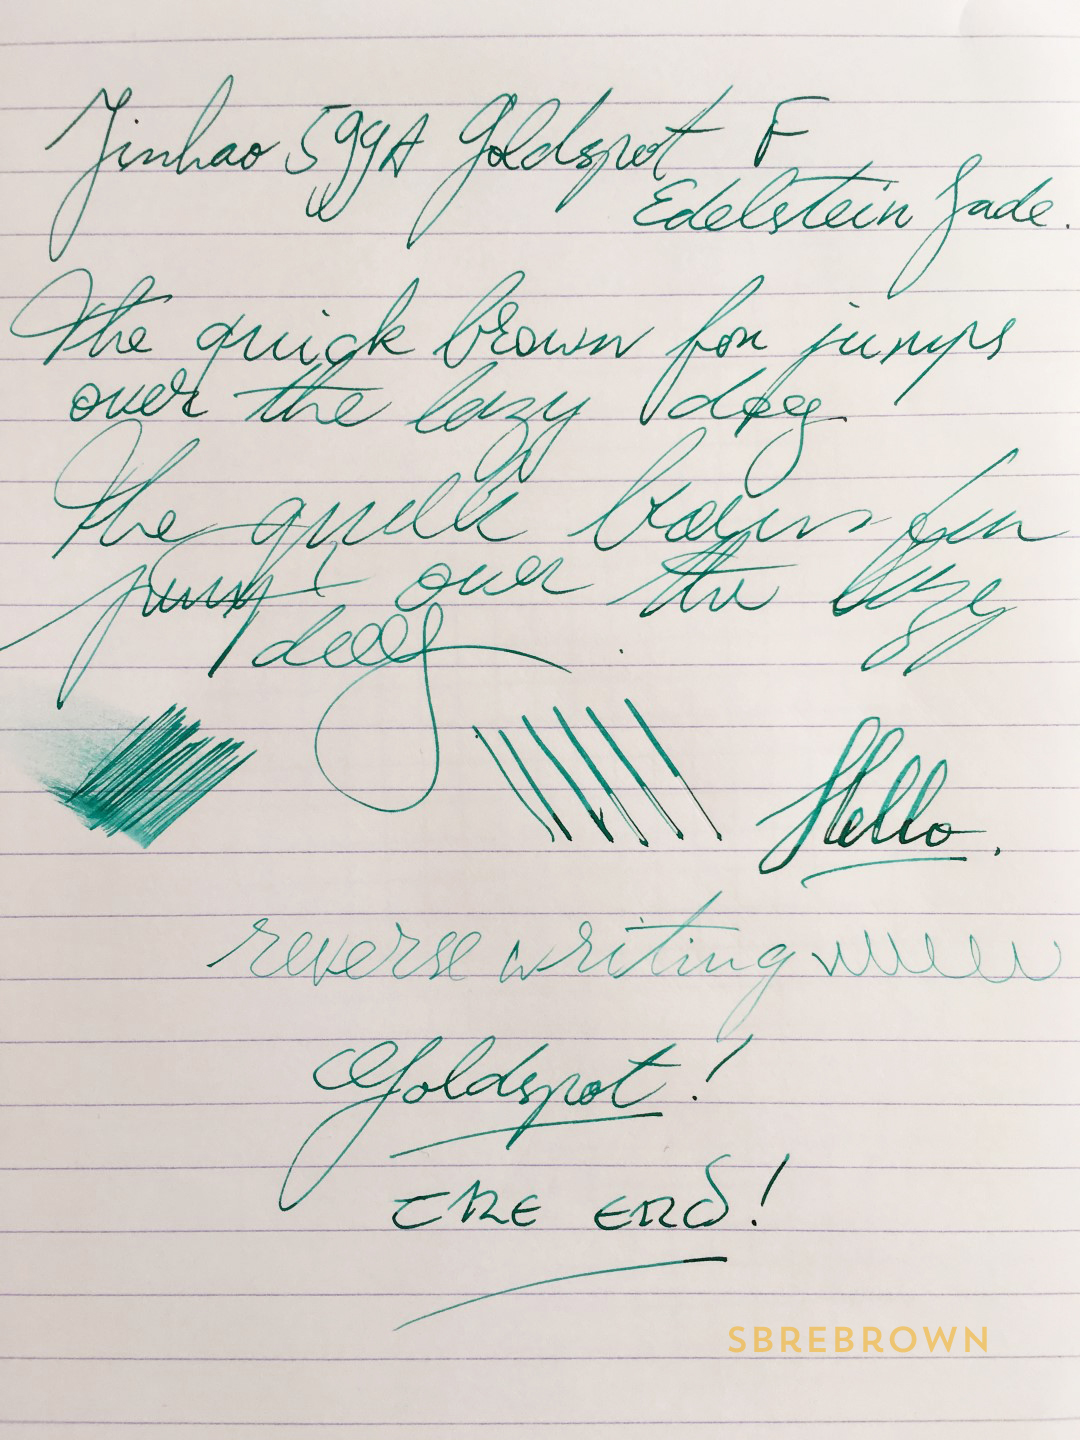 Jinhao 599A Goldspot F
Edelstein Jade.
The quick brown fox jumps
over the lazy dog
The quick brown fox
jumps over the lazy
dog.
Hello.
reverse writing
Goldspot!
THE END!
SBREBROWN